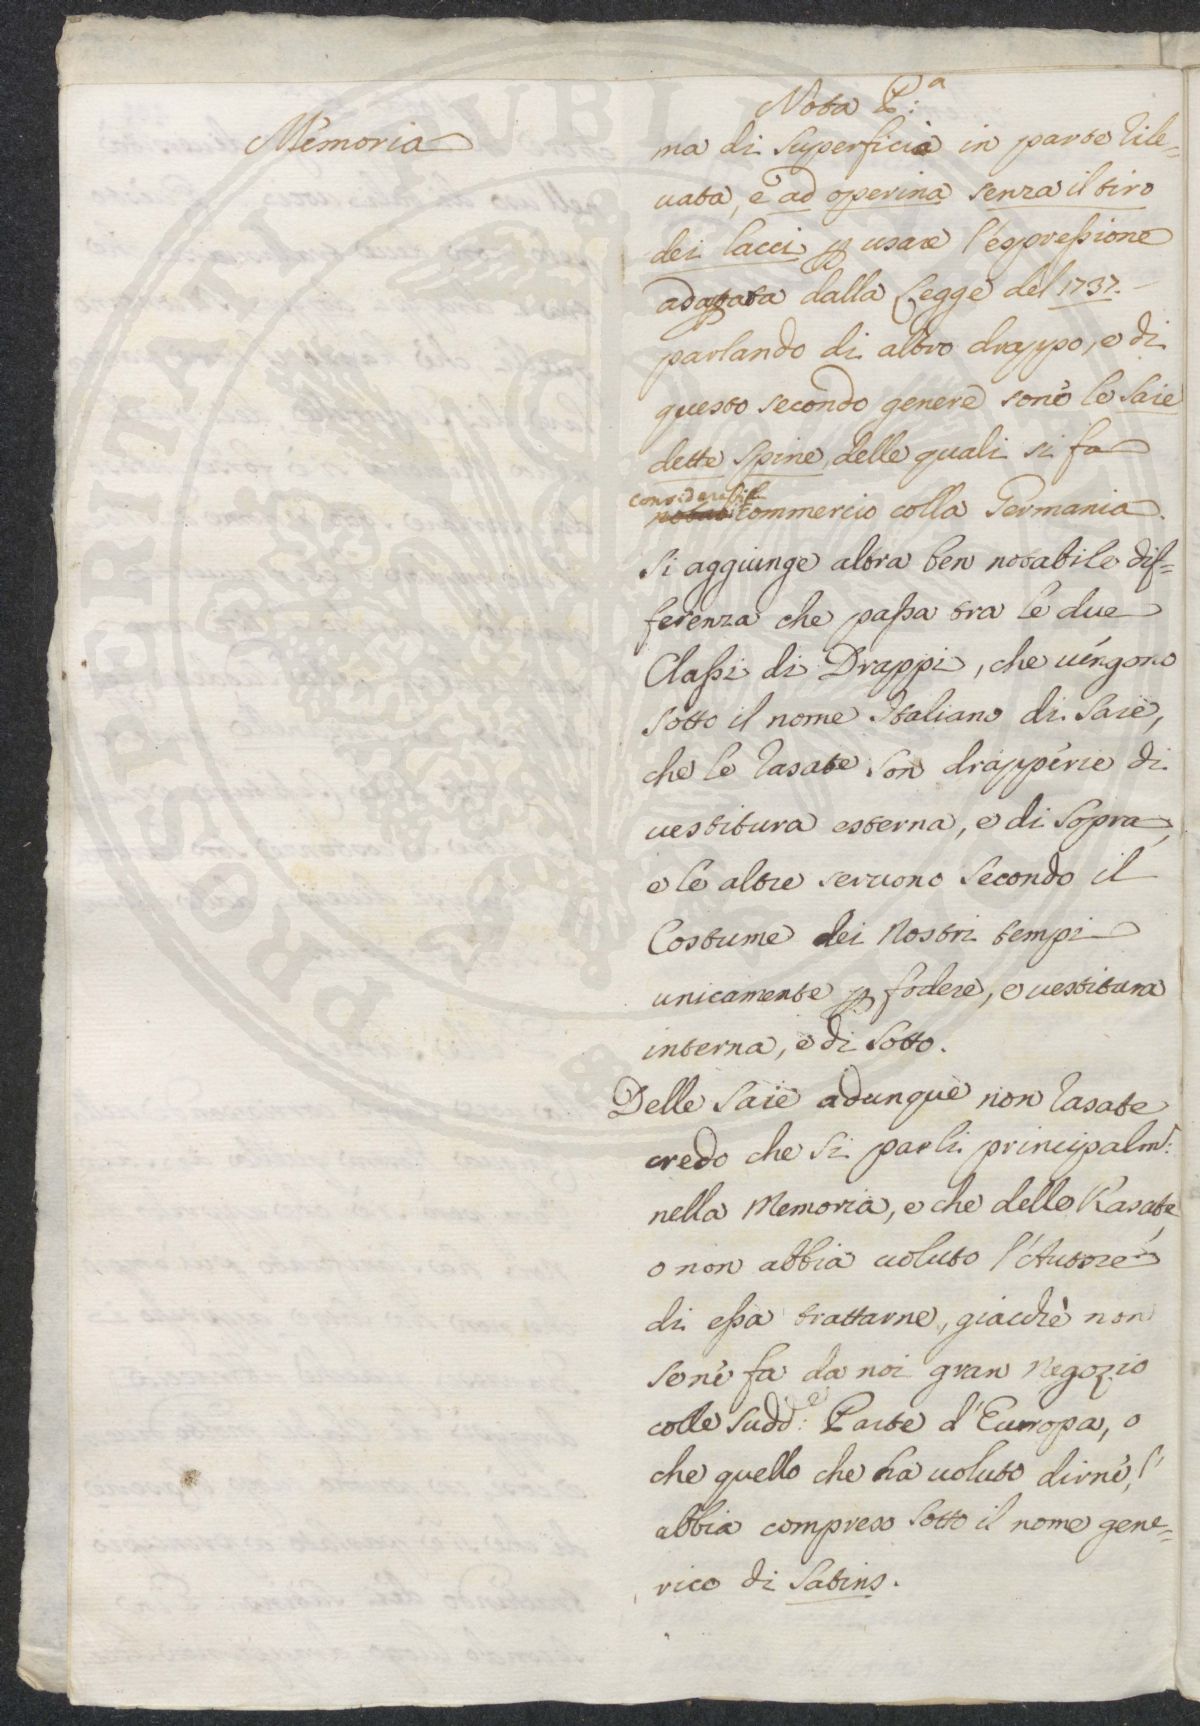 Memoria
Nota P:a
ma di superficie in parte rile=
vata, e ad operina senza il tiro
dei lacci p usare l'espressione
adattata dalla Legge del 1737.
parlando di altro drappo, e di
questo secondo genere sono le Saie
dette Spine, delle quali si fa
considerabile
commercio colla Germania.
Si aggiunge altra ben notabile dif=
ferenza che passa tra le due
Classi di Drappi, che vengono
sotto il nome Italiano di Saie,
che le rasate son drapperie di
vestitura esterna, e di sopra,
e le altre servono secondo il
Costume dei Nostri tempi
unicamente p fodere, e vestitura
interna, e di sotto.
Delle Saie adunque non rasate
credo che si parli principalm:
nella Memoria, e che delle Rasate
o non abbia voluto l'Autore
di essa trattarne, giacchè non
se ne fa da noi gran Negozio
colle sudd:e Parte d'Europa, o
che quello che ha voluto dirne, l'
abbia compreso sotto il nome gene=
rico di Satins.
PROSPERITATI PUBLICAE